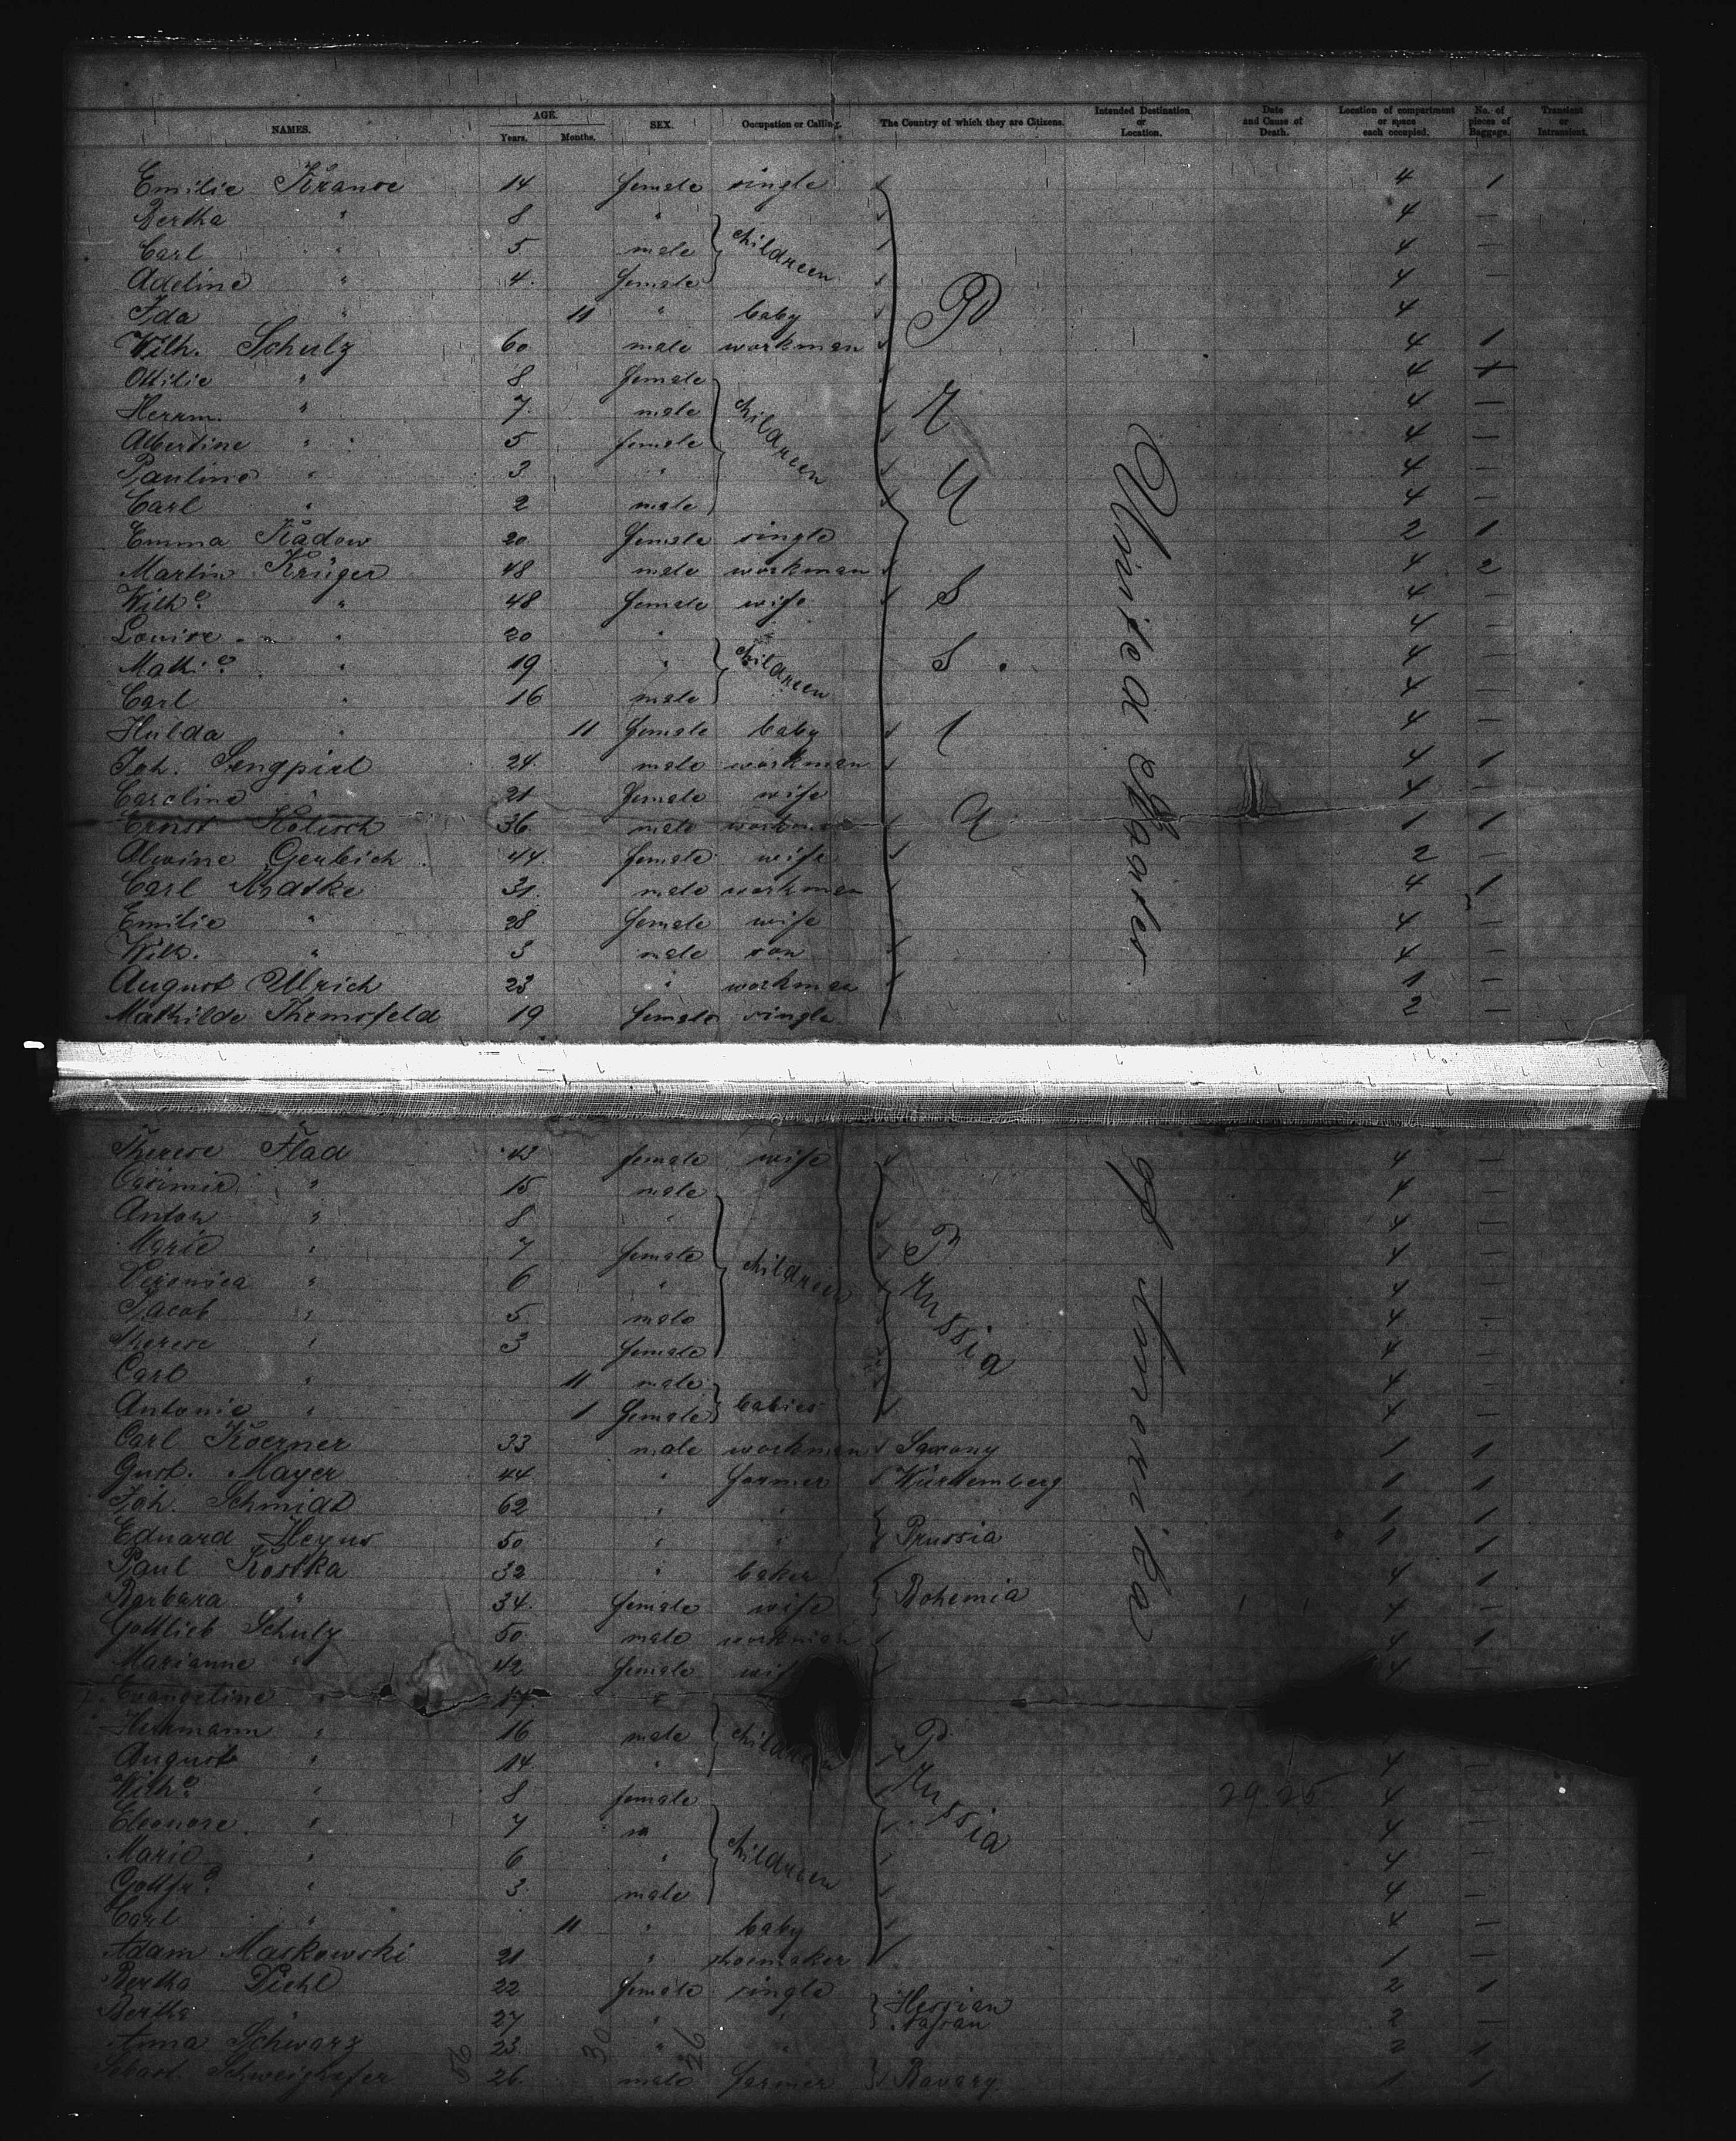 NAMES. AGE. Years. Months. SEX. Occupation or Calling. The Country of which they are Citizens. Intended Destination or Location. Date and Cause of Death. Location of compartment or space each occupied. No. of pieces of Baggage. Transient or Intransient.
Emilie Krause 14 female single 4 1
Bertha " 8 " 4 —
Carl " 5 male children 4 —
Adeline " 4 female 4 —
Ida " 11 " baby 4
Wilh. Schulz 60 male workman 4 1
Ottilie " 8 female 4
Herrm. " 7 male children 4 —
Albertine " 5 female 4 —
Pauline " 3 " 4 —
Carl " 2 male 4 —
Emma Radow 20 female single 2 1
Martin Krüger 48 male workman 4 2
Wilhe " 48 female wife 4 —
Louise " 20 " 4 —
Math.e " 19 " children 4 —
Carl " 16 male 4 —
Hulda " 11 female baby 4 —
Joh. Sengpiel 24 male workman 4 1
Caroline " 21 female wife 4 —
Ernst Kolisch 36 male workman 1 1
Alwine Gerbich 44 female wife 2 —
Carl Kratke 31 male workman 4 1
Emilie " 28 female wife 4 —
Wilh. " 3 male son 4 —
August Ulrich 23 " workman 1 —
Mathilde Themsfeld 19 female single 2 —
Prussia
United States
Therese Flad 43 female wife 4 —
Casimir " 15 male 4 —
Anton " 8 " 4 —
Marie " 7 female 4 —
Veronica " 6 " children 4 —
Jacob " 5 male 4
Therese " 3 female 4 —
Carl " 11 male 4 —
Antonie " 1 female babies 4 —
Prussia
of America
Carl Koerner 33 male workman Saxony 1 1
Gust. Mayer 44 " farmer Würtemberg 1 1
Joh. Schmidt 62 " " 1 1
Eduard Heyns 50 " " Prussia 1 1
Paul Kostka 32 " baker 4 1
Barbara " 34 female wife Bohemia 4 —
Gottlieb Schulz 50 male workman 4 1
Marianne " 42 female wife 4 —
Evangeline " 17 "
Herrmann " 16 male children
August " 14 " 4 —
Wilhe " 8 female 4 — 29 25
Eleonore " 7 " 4 —
Marie " 6 " children 4 —
Gottfr.d " 3 male 4 —
Carl " 11 " baby 4 —
Prussia
Adam Maskowski 21 " shoemaker 1 —
Bertha Diehl 22 female single 2 1
Bertha " 27 " " Hessian Nassau 2 —
Anna Schwarz 23 " " 2 1
Sebast. Schweighofer 26 male farmer Bavary 1 1
56 30 26